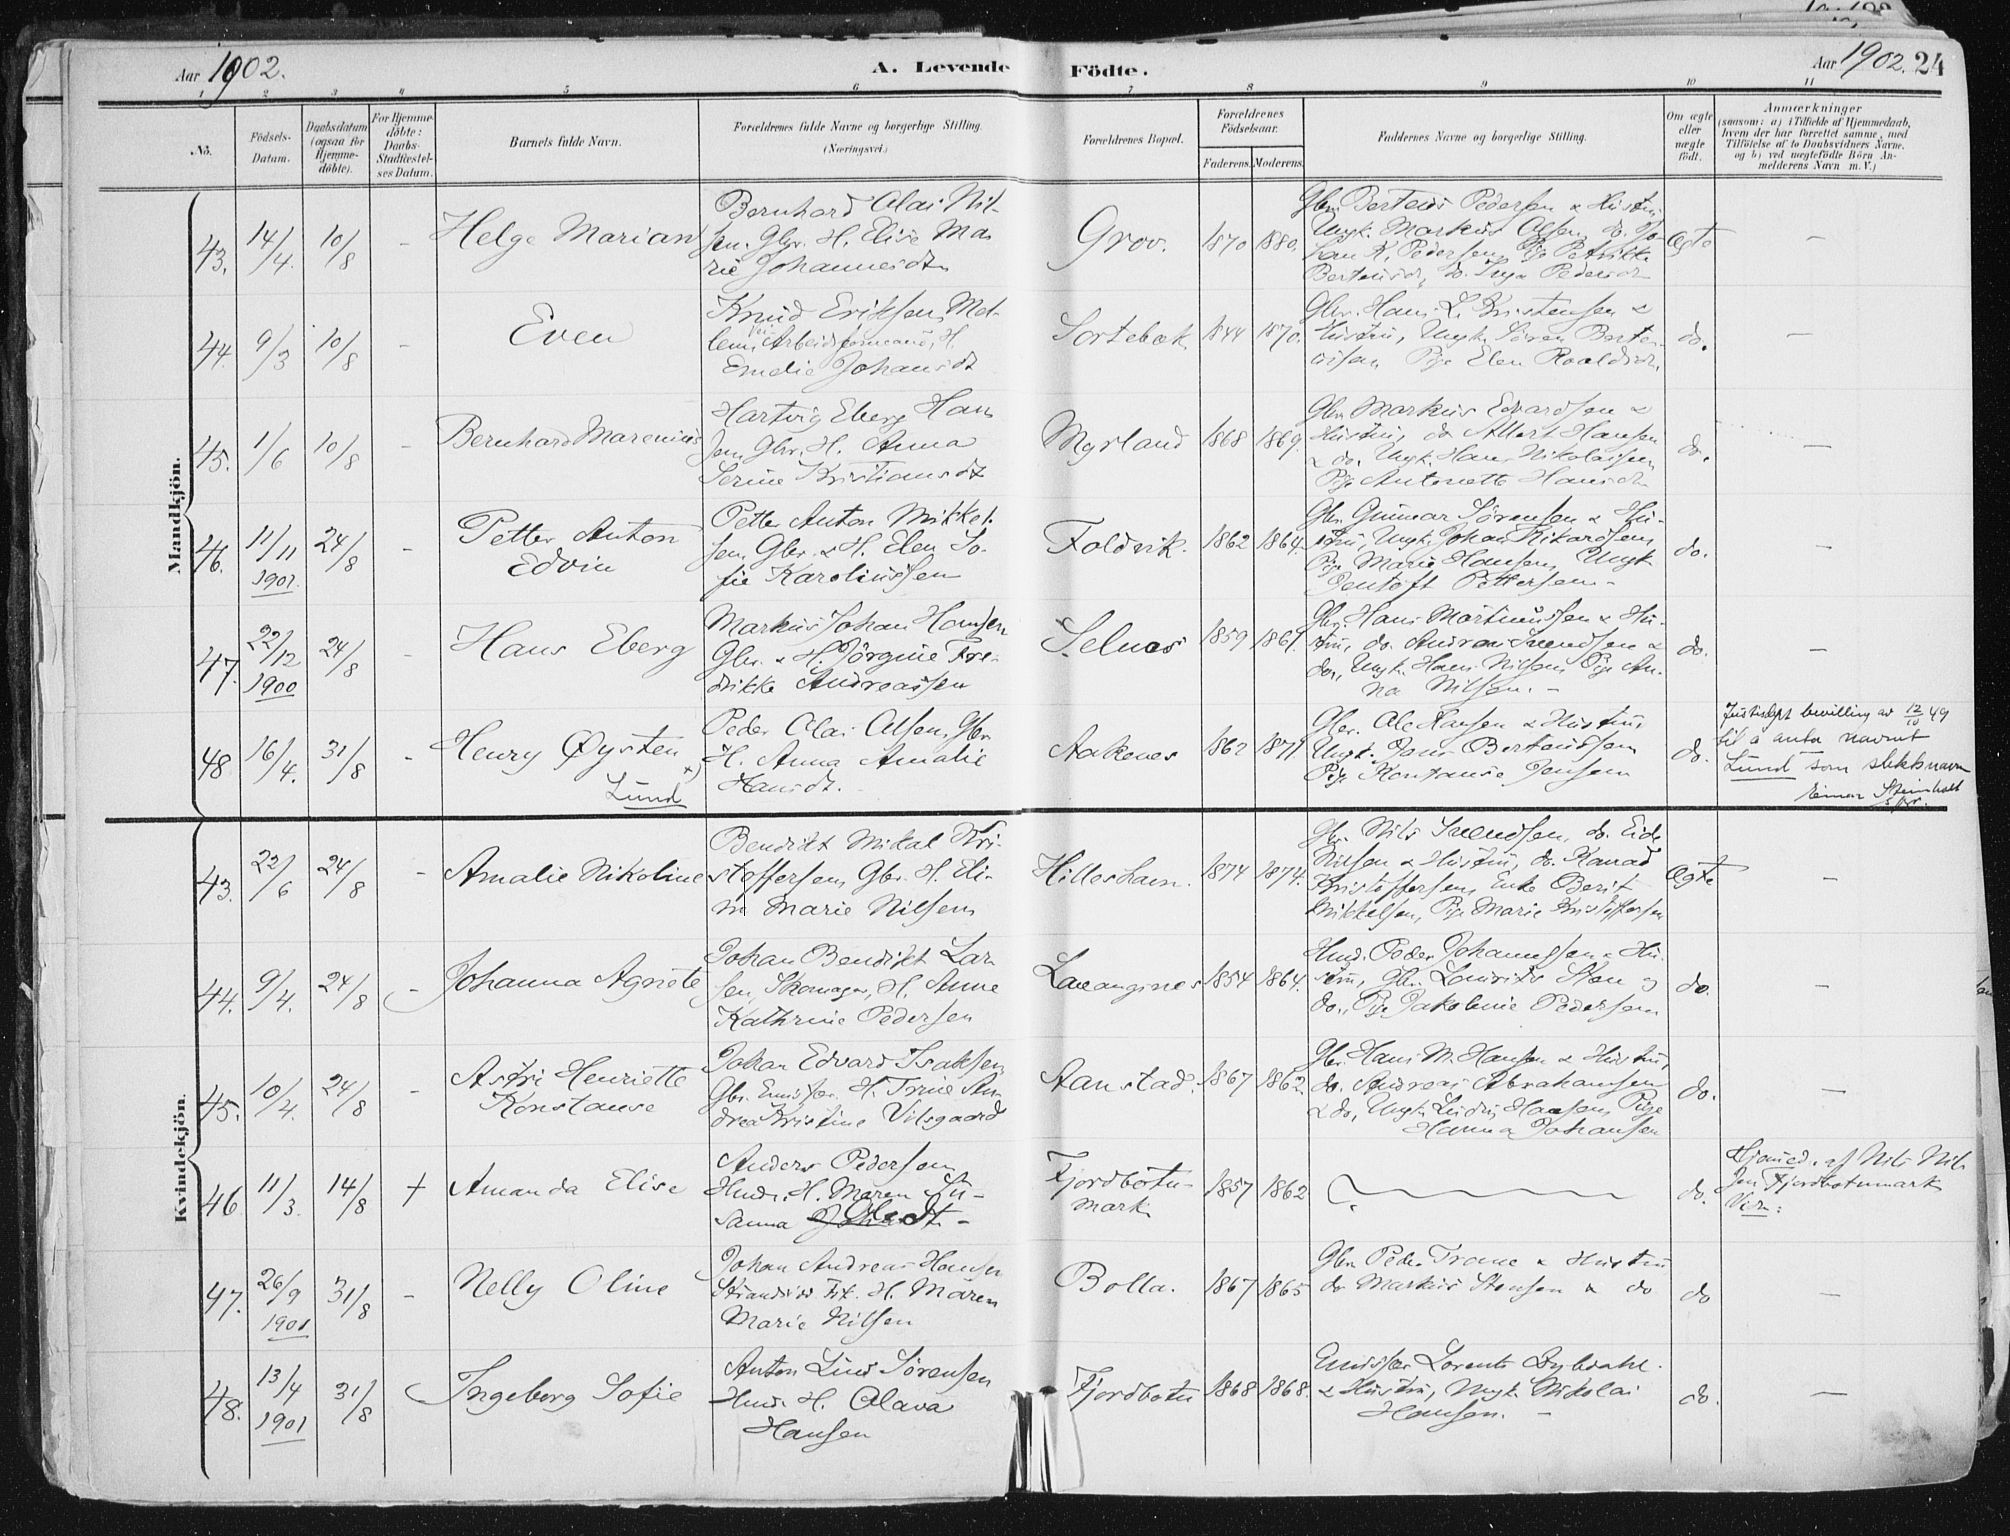 Aar 1902.
A. Levende Födte.
Aar 1902. 24
1 2 3 4 5 6 7 8 9 10 11
No.
Födsels-Datum.
Daabsdatum (ogsaa for Hjemme-döbte).
For Hjemme-döbte: Daabs-Stadfæstel-ses Datum.
Barnets fulde Navn.
Forældrenes fulde Navne og borgerlige Stilling. (Næringsvei.)
Forældrenes Bopæl.
Forældrenes Födselsaar.
Faderens. Moderens.
Faddernes Navne og borgerlige Stilling.
Om ægte eller uægte födt.
Anmærkninger
(saasom: a) i Tilfælde af Hjemmedaab,
hvem der har forrettet samme, med
Tilföielse af to Daabsvidners Navne,
og b) ved uægtefödte Börn An-
melderens Navn m. V.)
Mandkjön.
43. 14/4. 10/8 - Helge Marian
Bernhard Olai Nil-
sen. Gbr. H. Elise Ma
rie Johannesdt.
Grov. 1870 1880.
Gbr. Berteus Pedersen & Hustru
Ungk. Markus Olsen, do. Jo-
han K. Pedersen, Pige Petrikke
Berteusdt., do. Inga Pedersdt.
Ægte -
44. 9/3 10/8 - Even
Knud Eriksen Mel-
lem, Vei Arbeidsformand, H.
Emelie Johansdt
Sortebæk 1844 1870.
Gbr. Hans L. Kristensen &
Hustru, Ungk. Sören Berte-
ussen, Pige Elen Roaldsdt.
do. -
45. 1/6 10/8 - Bernhard Marenius
Hartvig Eberg Han
sen, Gbr. H. Anna
Serine Kristiansdt
Myrland 1868 1869.
Gbr. Markus Edvardsen &
Hustru, do Albert Hansen
& do. Ungk. Hans Nikolaisen,
Pige Antonette Hansdt.
do. -
46. 11/11 1901. 24/8 - Petter Anton
Edvin
Petter Anton Mikkel-
sen, Gbr. & H. Elen So-
fie Karolinssen
Foldvik. 1862 1864.
Gbr. Gunnar Sörensen & Hu-
stru, Ungk. Johan Rikardsen,
Pige Marie Hansen, Ungk.
Bentoft Pettersen.-
do. -
47. 22/12 1900 24/8 - Hans Eberg
Markus Johan Hansen
Gbr. & H. Jörgine Fre-
drikke Andreassen
Selnes 1859 1861.
Gbr. Hans Mortinussen & Hu-
stru, do. Andreas Svendsen &
do., Ungk. Hans Nilsen, Pige An-
na Nilsen. -
do. -
48 16/4. 31/8 - Henry Øysten
x) Lund
Peder Olai Olsen, Gbr.
H. Anna Amalie
Hansdt.
Aakenes 1862 1871
Gbr. Ole Hansen & Hustru
Ungk. Jens Berteussen
Pige Konstanse Jensen
do.
Justisdept bevilling av 12/10 49
til å anta navnet
Lund som slektsnavn
Einar Steinholt
s.pr.
Kvindekjön.
43. 22/6 24/8 - Amalie Nikoline
Bendikt Mikal Kri-
stoffersen, Gbr. H. Eli-
Marie Nilsen
Hilleshavn. 1874 1874.
Gbr. Nils Svendsen, do. Eide
Nilsen & Hustru, do. Konrad
Kristoffersen, Enke Berit
Mikkelsen, Pige Marie Kristoffersen
Ægte -
44. 9/4. 24/8 - Johanna Agnete
Johan Bendikt Lar
sen, Skomager, H. Anne
Kathrine Pedersen
Lavangsnes 1854 1864.
Husm. Peder Johannessen & Hu-
stru, Gbr. Lauritz Sten og
do., Pige Jakobine Pedersen
do. -
45. 10/4. 24/8 - Astri Henriette
Konstanse
Johan Edvard Isaksen
Gbr. Emissær. H. Trine An
drea Kristine Vilsgaard
Aanstad. 1867 1862.
Gbr. Hans M. Hansen & Hustru,
do. Andreas Abrahamsen
& do, Ungk. Ludvig Hansen, Pige
Hanna Johansen
do. -
46 11/3. 14/8 + Amanda Elise
Anders Pedersen
Husm. H. Maren Su-
sanna Olsdt -
Fjordbotn-
mark. 1857 1862
do.
Hjemmed. af Nils Nil-
sen Fjordbotnmark
47. 26/9 1901 31/8 - Nelly Oline
Johan Andreas Hansen
Strandsid. Fit. H. Maren
Marie Nilsen
Bolla. 1867 1865
Gbr. Peder Trane & Hustru
do Markus Stensen & do
do -
48. 13/4 1901 31/8 - Ingeborg Sofie
Anton Lind Sörensen
Husm. H. Olava
Hansen
Fjordbotn 1868 1868.
Emissær Lorents Dybdahl
& Hustru, Ungk. Nikolai
Hansen. -
do. -